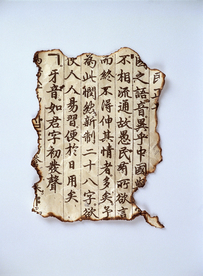 國之語音異乎中國與
不相流通故愚民有所欲言
而終不得伸其情者多矣予
為此憫然新制二十八字欲
人人易習便於日用矣
ㄱ牙音如君字初發聲